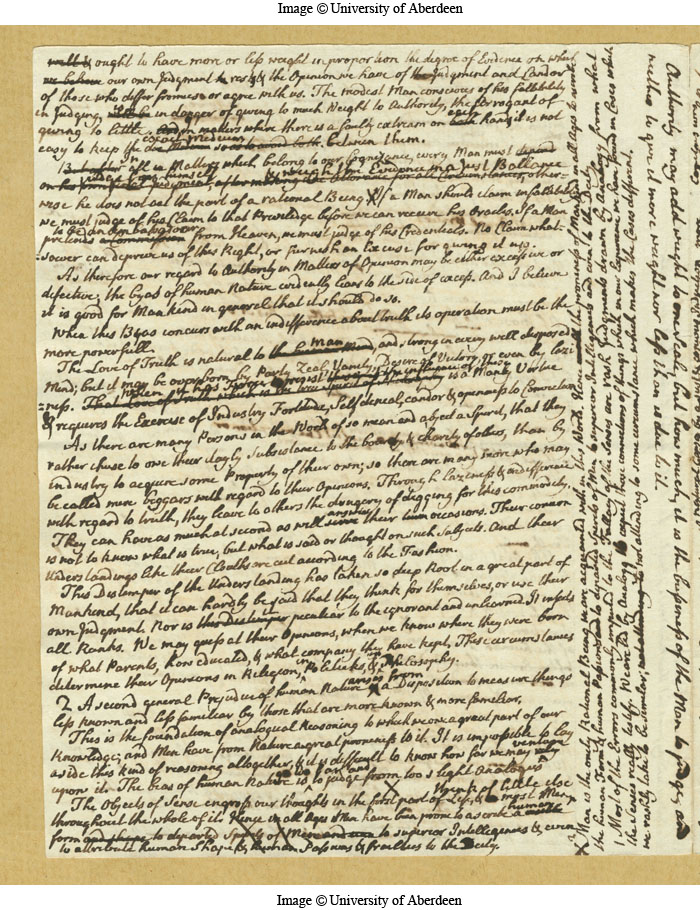 Image © University of Aberdeen
ought to have more or less weight in proportion the degree of Evidence on which
our own Judgment rests & the Opinion we have of the Judgment and Candor
of those who differ from us or agree with us. The modest Man conscious of his fallibility
in Judging, is in danger of giving to much Weight to Authority, the Arrogant of
giving to little. In matters where there is a faulty extream on each hand it is not
easy to keep the exact Medium between them.
all in Matters which belong to our Cognizance, every Man must
Judge for himself & weigh the Evidence in a just Ballance
other-
wise he does not act the part of a rational Being. If a Man should claim infallibility
we must judge of his Claim to that Priviledge before we can receive his Oracles. If a Man
to be an Ambassador
pretends from Heaven, we must judge of his Credentials. No Claim what-
soever can deprive us of this Right, or furnish an Excuse for giving it up.
As therefore our regard to Authority in Matters of Opinion may be either excessive or
defective, the byas of human Nature evidently leans to the side of excess. And I believe
it is good for Man kind in general that it should do so.
When this Byas concurs with an indifference about truth its operation must be the
more powerfull.
The Love of Truth is natural to man, and strong in every well disposed
Mind; but it may be overborn by Party Zeal, Vanity, Desire of Victory, or even by lazi
ness. is a Manly Virtue
& requires the Exercise of Industry Fortitude, Self denial, candor & openness to Conviction
As there are many Persons in the World of so mean and abject a Spirit, that they
rather chuse to owe their dayly Subsistance to the bounty & charity of others, than by
industry to acquire some Property of their own; so there are many more who may
be called mere beggars with regard to their Opinions. Through laziness & indifference
with regard to truth, they leave to others the drugery of digging for this commodity.
They can have as much at second as will answer their occasions. Their concern
is not to know what is true, but what is said or thought on such Subjects. And their
Understandings like their Cloaths are cut according to the Fashion.
This Distemper of the Understanding has taken so deep Root in a great part of
Mankind, that it can hardly be said that they think for themselves, or use their
own Judgment. Nor is this distemper peculiar to the ignorant and unlearned. It infects
all Ranks. We may guess at their Opinions, when we know where they were born
of what Parents, how educated, & what company they have kept, These circumstances
determine their Opinions in Religion, in Politicks, & in Philosophy.
2 A second general Prejudice of human Nature arises from a Disposition to measure things
less known and less familiar by those that are more known & more familiar.
This is the foundation of analogical Reasoning to which we owe a great part of our
Knowledge; and Men have from Nature a great proneness to it. It is impossible to lay
aside this kind of reasoning altogether, & it is difficult to know how far we may venture
upon it. The bias of human Nature is to judge from too slight Analogies
The Objects of Sense engross our thoughts in the first part of Life, & most Men think of little else
throughout the whole of it. Hence in all Ages Men have been prone to ascribe a human
form to superior Intelligences &, even
to attribute human Shape & human Passions & frailties to the Deity.
Man is the only Rational Being we are acquainted with in this World. Hence the proneness of Man Kind in all Ages to ascribe
the human Form & human Passions to departed Spirits of Men to superior Intelligences and even to the Deity.
Most of the Errors commonly imputed to the Fallacy of the Senses are rash Judgments drawn by Analogy from what
the Senses really testify. We are led by Analogy to expect those connections of things which in our Experience we have found in Cases which
we rashly take to be similar, not attending to some circumstance which makes the Cases different.
Authority may add weight to one Scale, but how much, it is the business of the Man to judge, and
neither to give it more weight nor less than is due to it.
Image © University of Aberdeen